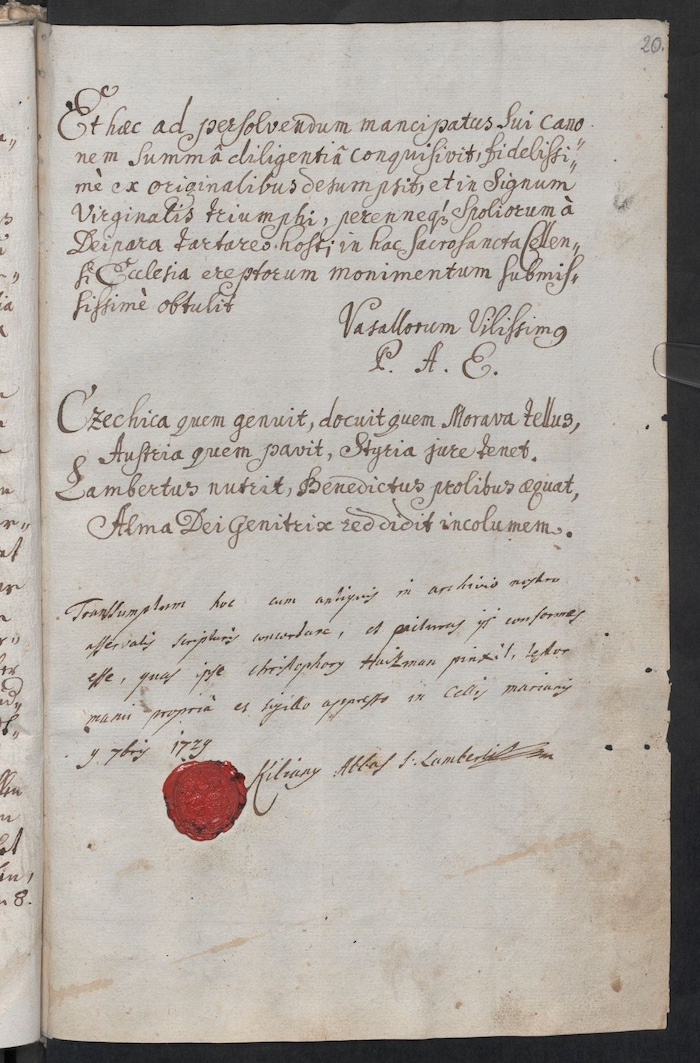 20.
Et hæc ad persolvendum mancipatus sui cano
nem summâ diligentiâ conquisivit, fidelissi„
mè ex originalibus desumpsit, et in Signum
Virginalis triumphi, perenneq; Spoliorum à
Deipara tartareo hosti in hac Sacrosancta Cellen„
si Ecclesia ereptorum monimentum submis„
sissimè obtulit
Vasallorum Vilissimꝰ
P. A. E.
Czechica quem genuit, docuit quem Morava tellus,
Austria quem pavit, Styria jure tenet.
Lambertus nutrit, Benedictus prolibus æquat,
Alma Dei Genitrix reddidit incolumem.
Transsumptum hoc cum antiquis in archivio nostro
asservatis scripturis concordare, et picturas ijs conformes
esse, quas ipse Christophorꝰ Haizman pinxit, testor
manu propriâ et sigillo appresso in Cellis marianis
9 7bris 1729
Kilianꝰ Abbas S. Lamberti